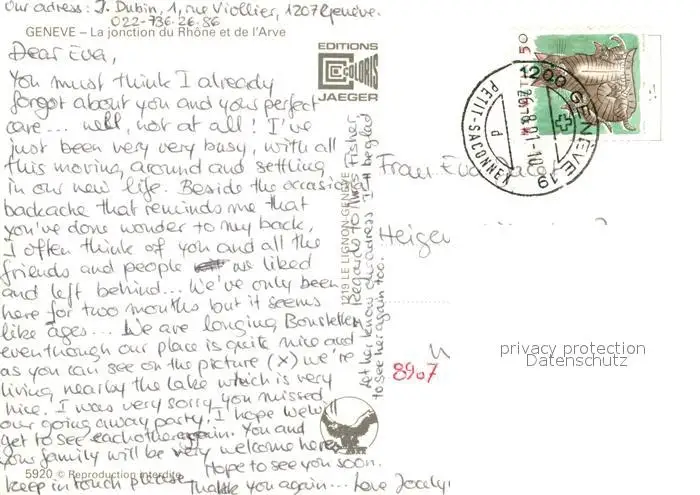 Our adress: J. Dubin, 1, rue Viollier, 1207 Genève.
022-736.26.86
GENEVE – La jonction du Rhône et de l'Arve
Dear Eva,
You must think I already
forgot about you and your perfect
care... well, not at all! I've
just been very very busy, with all
this moving around and settling
in our new life. Beside the occasional
backache that reminds me that
you've done wonder to my back,
I often think of you and all the
friends and people we liked
and left behind... We've only been
here for two months but it seems
like ages... We are longing Bonstetten
eventhough our place is quite nice and
as you can see on the picture (x) we're
living nearby the lake which is very
nice. I was very sorry you missed
our going away party. I hope we'll
get to see each other again. You and
your family will be very welcome here.
Hope to see you soon.
keep in touch please
Thank you again... Love Jocely
5920 © Reproduction interdite
EDITIONS
COLORIS
JAEGER
1219 LE LIGNON-GENEVE
Regards to Miss Fisher
let her know our adress I'll be glad
to see her again too.
Frau Eva
Heigen
8907
50
1200 GENÈVE 19
PETIT-SACONNEX
d
privacy protection
Datenschutz